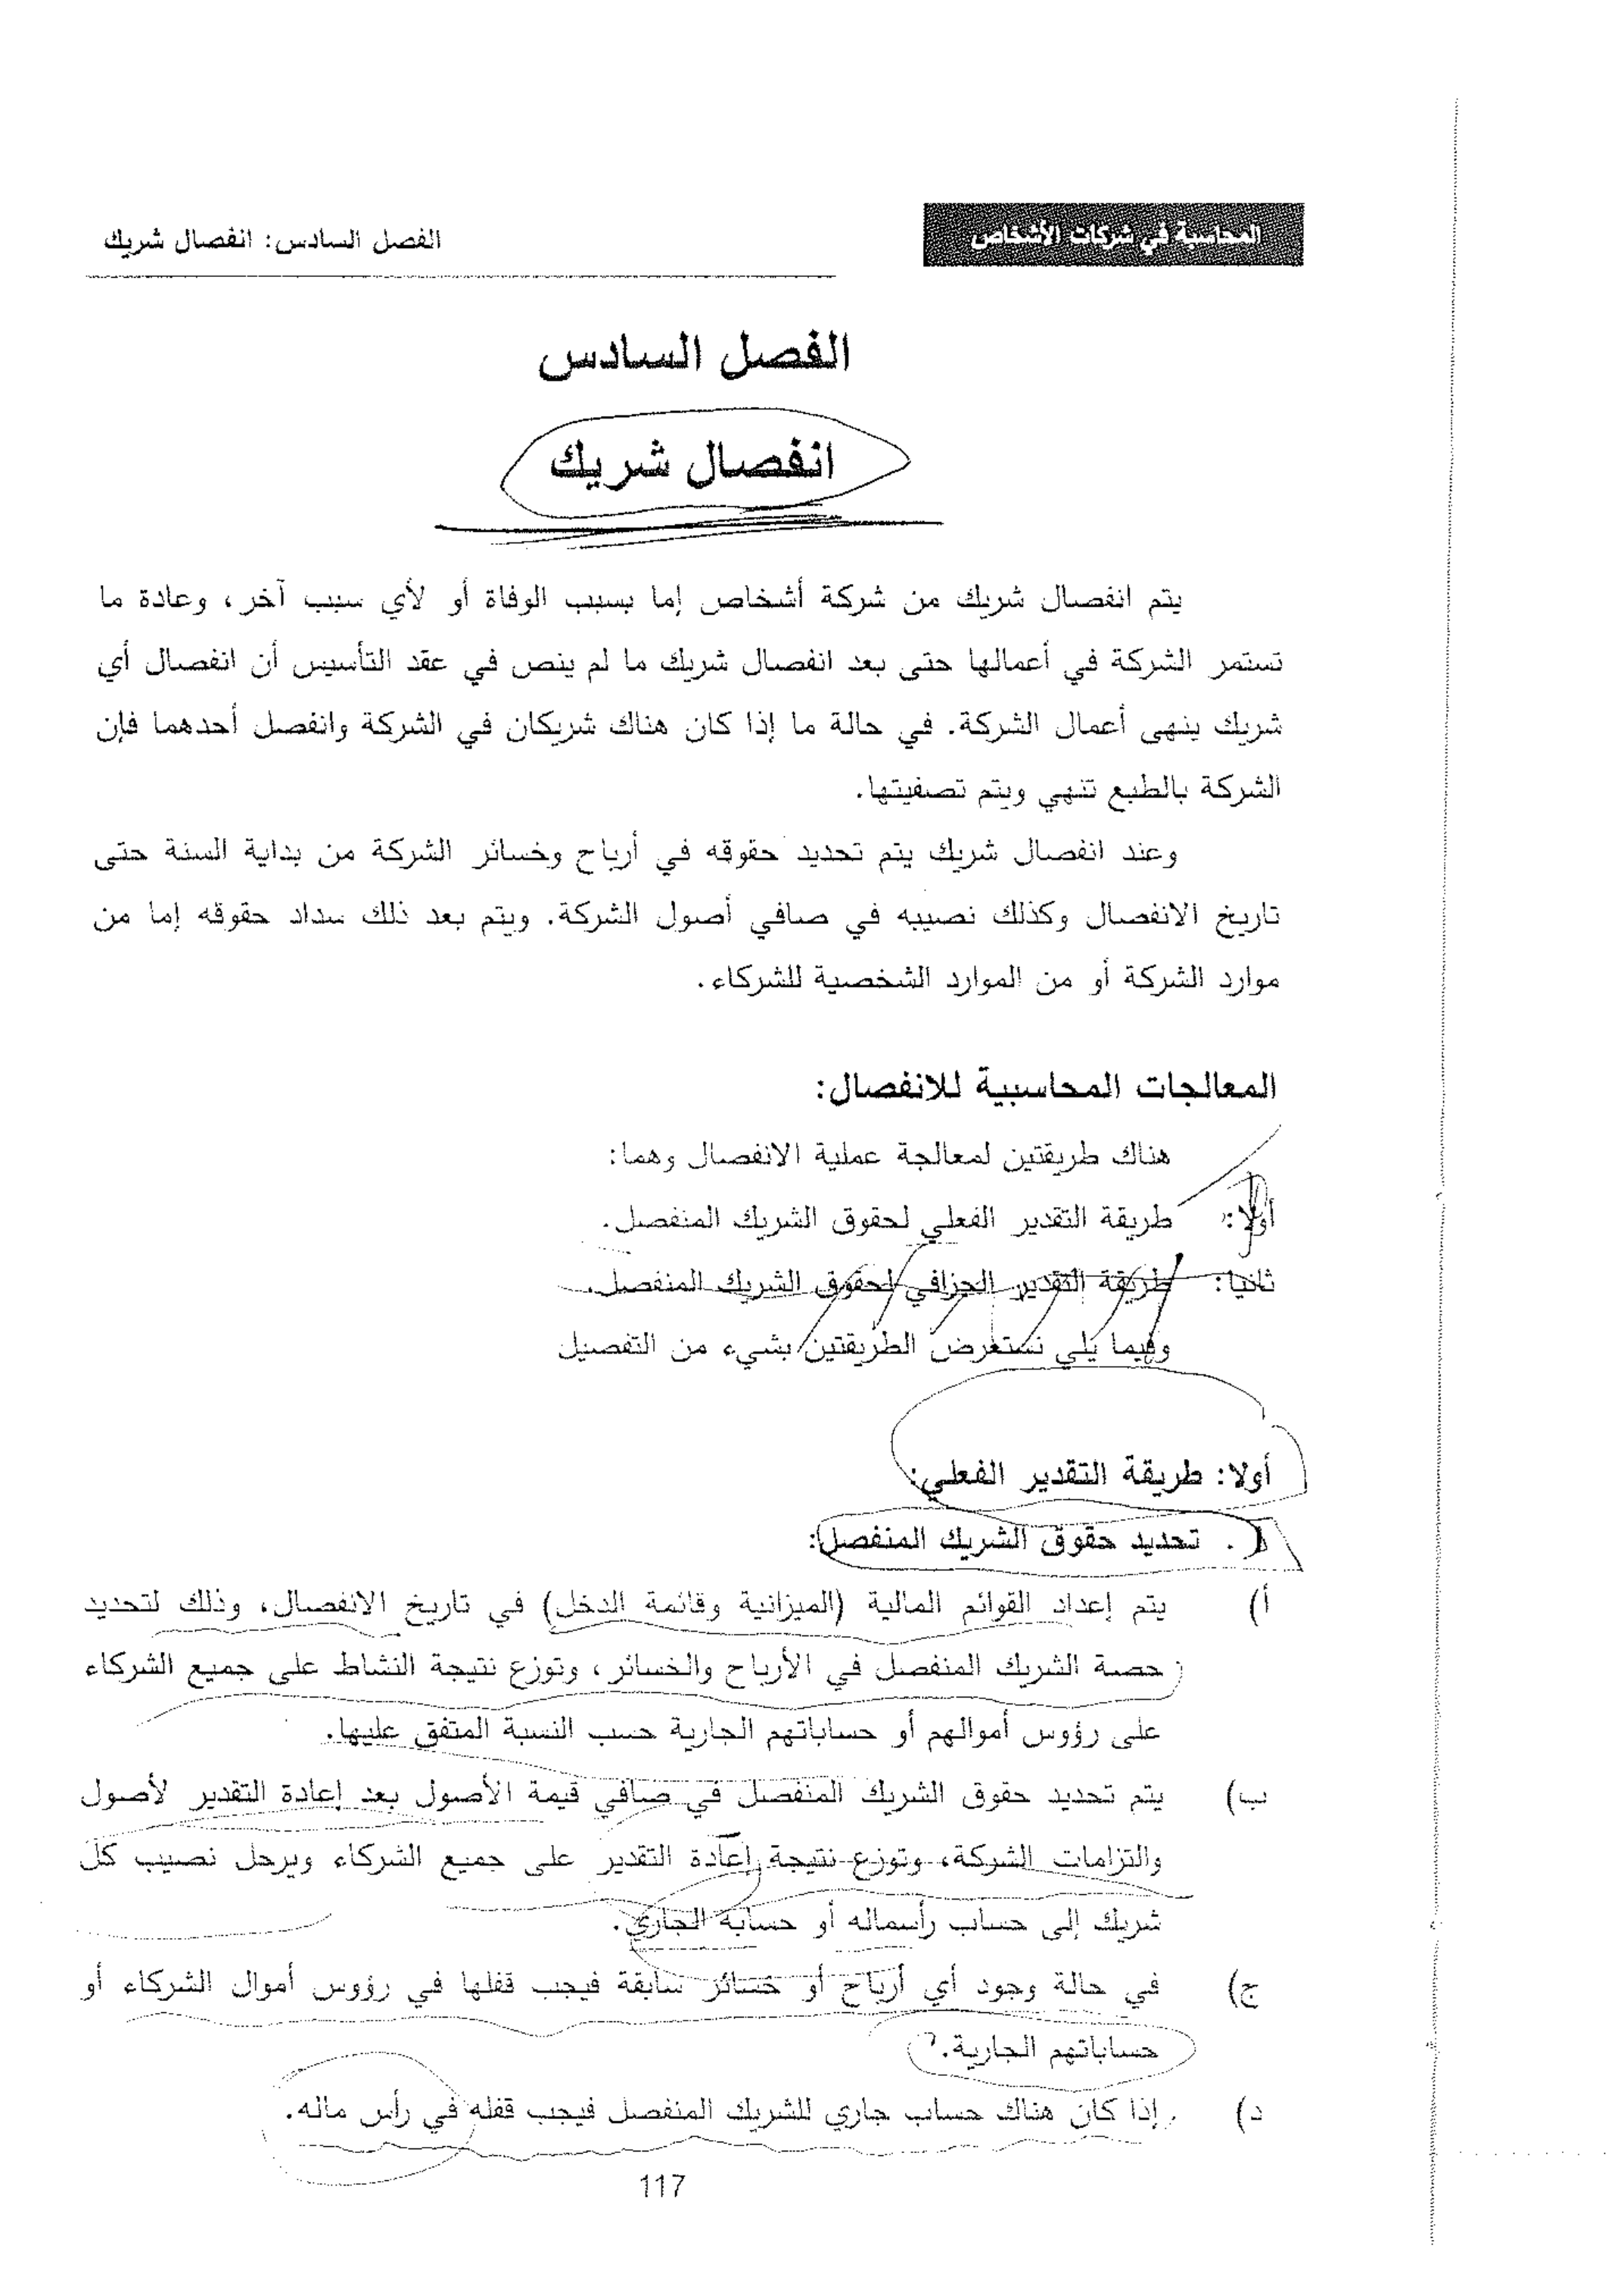 المحاسبة في شركات الأشخاص
الفصل السادس: انفصال شريك
الفصل السادس
انفصال شريك
يتم انفصال شريك من شركة أشخاص إما بسبب الوفاة أو لأي سبب آخر، وعادة ما
تستمر الشركة في أعمالها حتى بعد انفصال شريك ما لم ينص في عقد التأسيس أن انفصال أي
شريك ينهى أعمال الشركة. في حالة ما إذا كان هناك شريكان في الشركة وانفصل أحدهما فإن
الشركة بالطبع تنهي ويتم تصفيتها.
وعند انفصال شريك يتم تحديد حقوقه في أرباح وخسائر الشركة من بداية السنة حتى
تاريخ الانفصال وكذلك نصيبه في صافي أصول الشركة. ويتم بعد ذلك سداد حقوقه إما من
موارد الشركة أو من الموارد الشخصية للشركاء.
المعالجات المحاسبية للانفصال:
هناك طريقتين لمعالجة عملية الانفصال وهما:
أولا: طريقة التقدير الفعلي لحقوق الشريك المنفصل.
ثانيا: طريقة التقدير الجزافي لحقوق الشريك المنفصل.
وفيما يلي نستعرض الطريقتين بشيء من التفصيل
أولا: طريقة التقدير الفعلي:
. تحديد حقوق الشريك المنفصل:
أ) يتم إعداد القوائم المالية (الميزانية وقائمة الدخل) في تاريخ الانفصال، وذلك لتحديد
حصة الشريك المنفصل في الأرباح والخسائر، وتوزع نتيجة النشاط على جميع الشركاء
على رؤوس أموالهم أو حساباتهم الجارية حسب النسبة المتفق عليها.
ب) يتم تحديد حقوق الشريك المنفصل في صافي قيمة الأصول بعد إعادة التقدير لأصول
والتزامات الشركة، وتوزع نتيجة إعادة التقدير على جميع الشركاء ويرحل نصيب كل
شريك إلى حساب رأسماله أو حسابه الجاري.
ج) في حالة وجود أي أرباح أو خسائر سابقة فيجب قفلها في رؤوس أموال الشركاء أو
حساباتهم الجارية.
د) إذا كان هناك حساب جاري للشريك المنفصل فيجب قفله في رأس ماله.
117